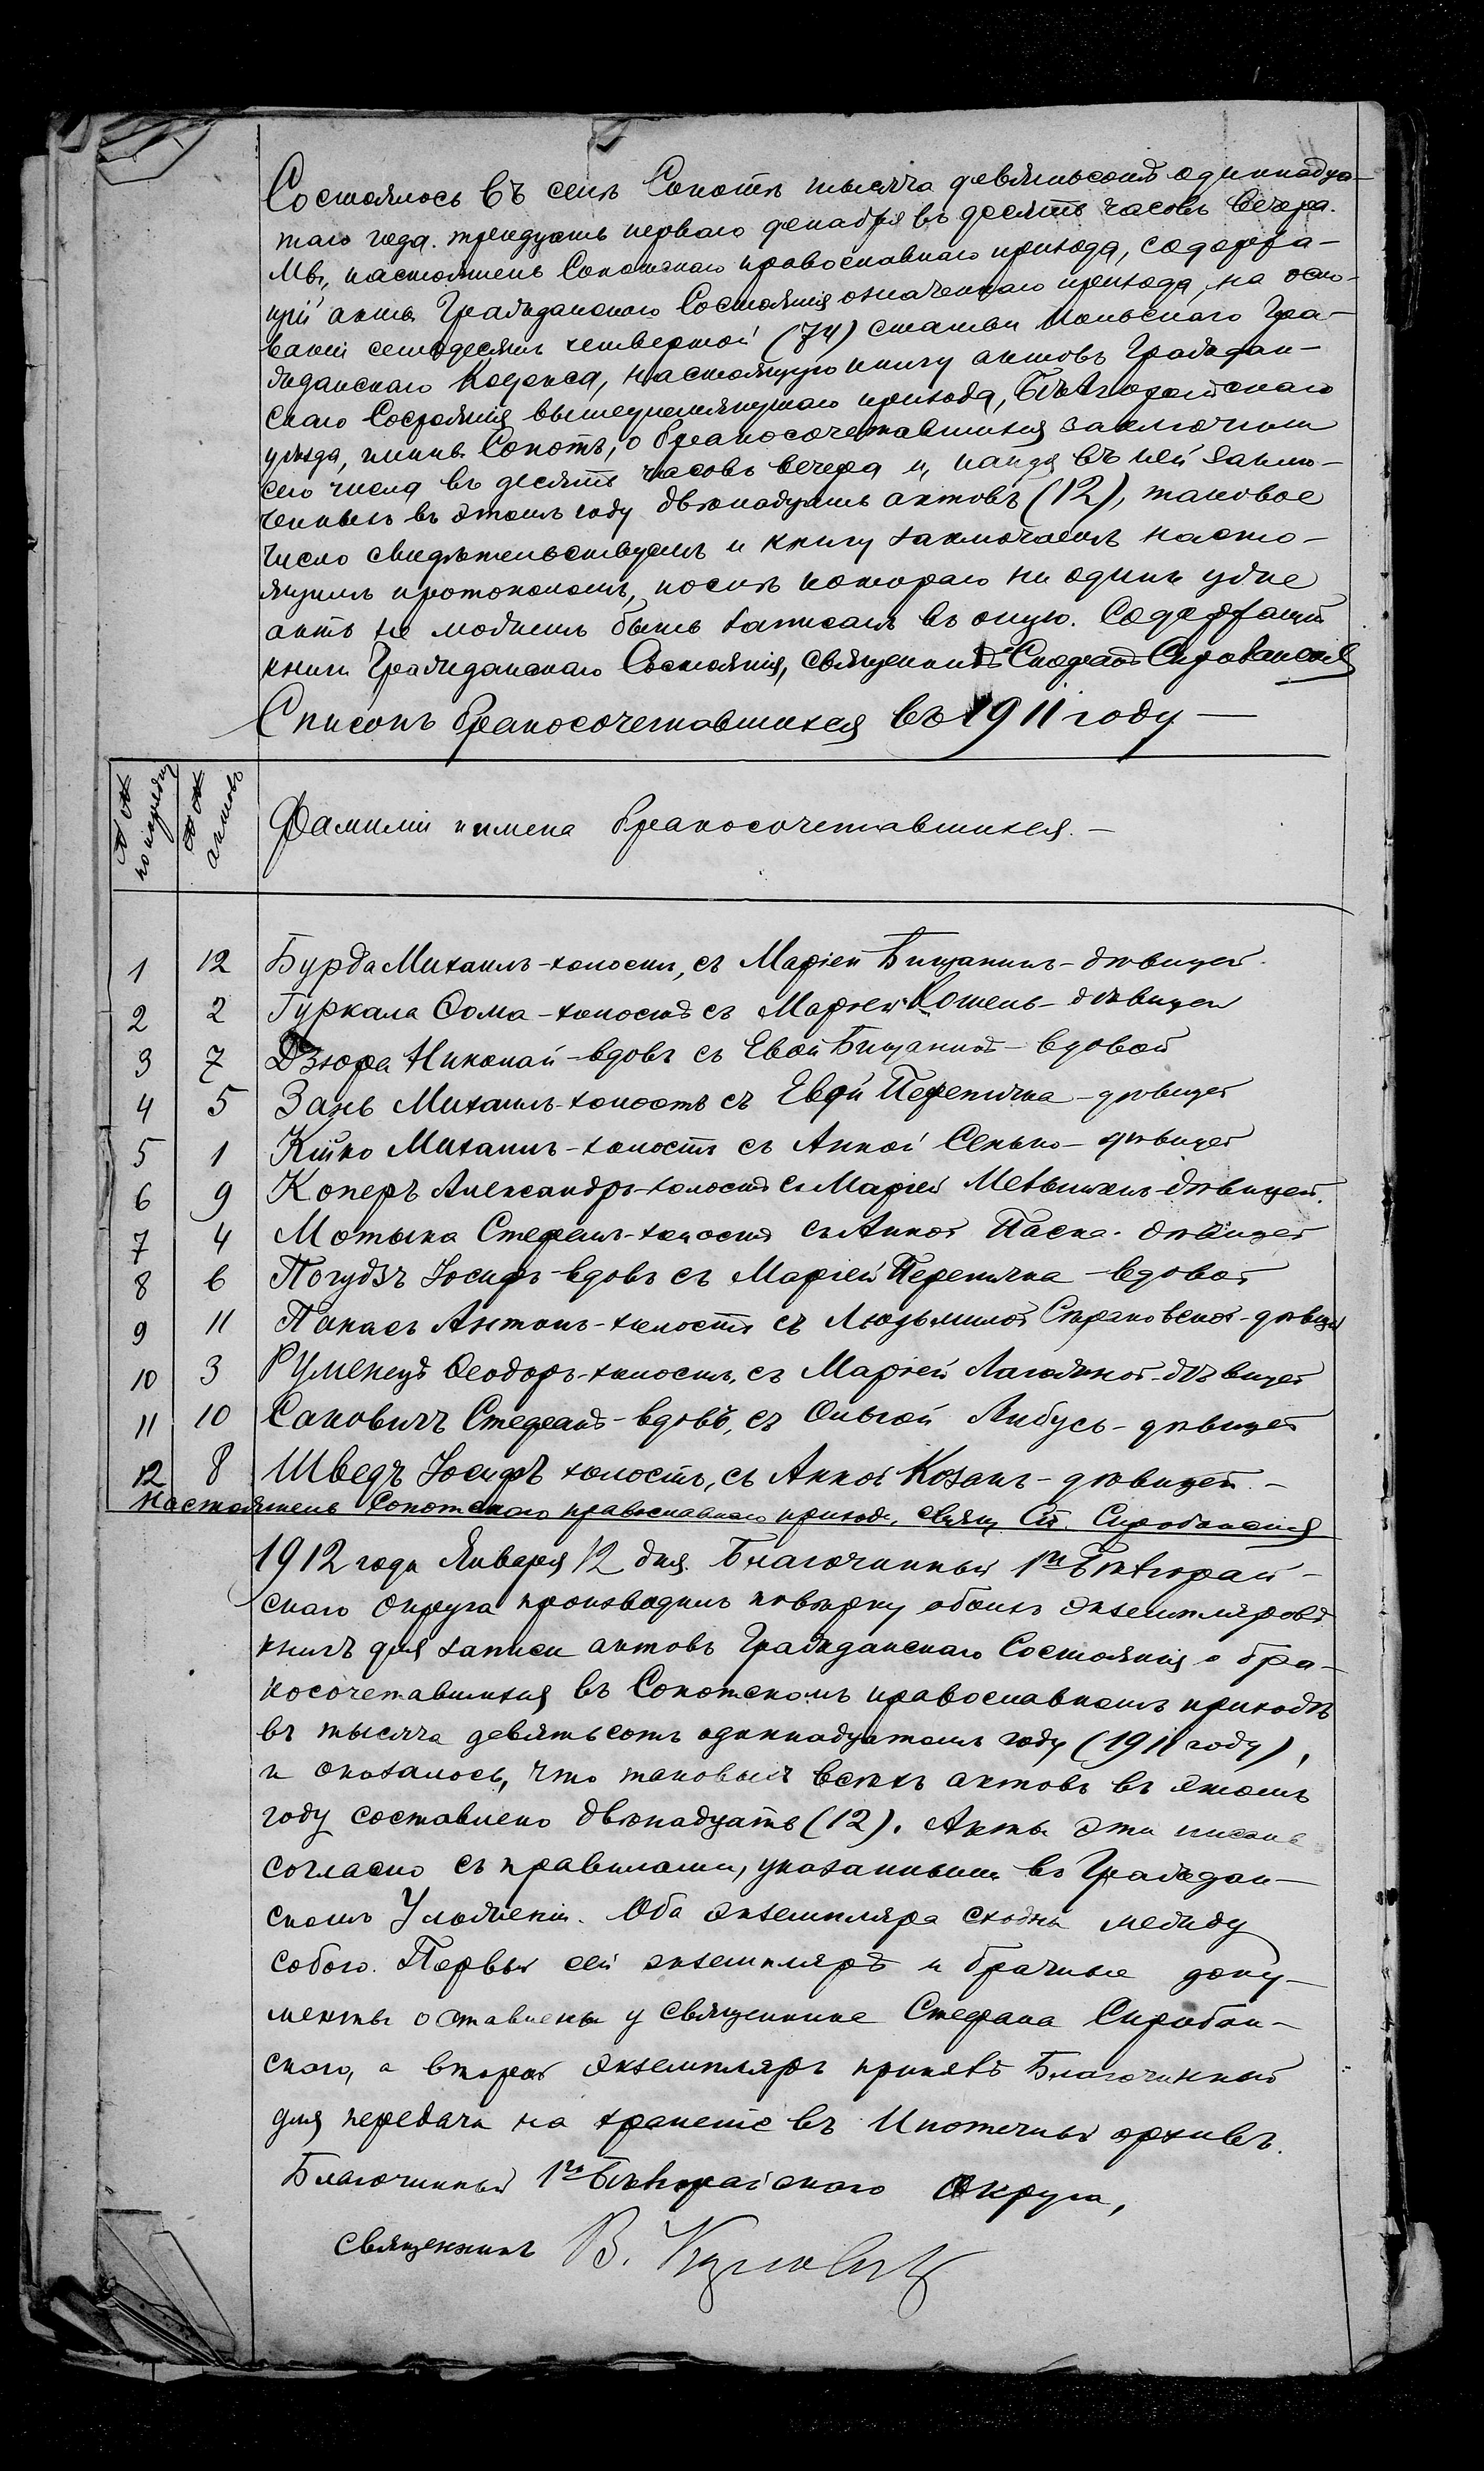 Состоялось въ селѣ Сопотѣ тысяча девятьсотъ одиннадца-
таго года тридцать перваго декабря въ десять часовъ вечера.
Мы, настоятель Сопотскаго православнаго прихода, содержа-
щій акты Гражданскаго Состоянія означеннаго прихода, на осно-
ваніи семьдесятъ четвертой (74) статьи Польскаго Гра-
жданскаго Кодекса, настоящую книгу актовъ Граждан-
скаго Состоянія вышеупомянутаго прихода, Бѣлгорайскаго
уѣзда, гмины Сопотъ, о бракосочетавшихся заключили
сего числа въ десять часовъ вечера и, найдя въ ней заклю-
ченныхъ въ этомъ году двѣнадцать актовъ (12), таковое
число свидѣтельствуемъ и книгу заключаемъ насто-
ящимъ протоколомъ, послѣ котораго ни одинъ уже
актъ не можетъ быть записанъ въ оную. Содержащій
книги Гражданскаго Состоянія, священникъ Стефанъ
Списокъ бракосочетавшихся въ 1911 году —
№№ по порядку
№№ актовъ
Фамиліи и имена бракосочетавшихся. —
1 12 Бурда Михаилъ - холостъ, съ Маріей Бищанинъ - дѣвицей.
2 2 Гуркала Ѳома - холостъ съ Маріей Кошель - дѣвицей
3 7 Дзюра Николай - вдовъ съ Евой Бищаниной - вдовой
4 5 Зань Михаилъ - холостъ съ Евой Перепичка - дѣвицей
5 1 Кійко Михаилъ - холостъ съ Анной Сенько - дѣвицей
6 9 Коперъ Александръ - холостъ съ Маріей - дѣвицей.
7 4 Мотыка Стефанъ - холостъ съ Анной Паска - дѣвицей
8 6 Погудзъ Іосифъ - вдовъ съ Маріей Перепичка - вдовой
9 11 Панасъ Антонъ - холостъ съ Людьмилой - дѣвицей
10 3 Руменецъ Ѳеодоръ - холостъ, съ Маріей - дѣвицей
11 10 Саковичъ Стефанъ - вдовъ, съ Ольгой Либусь - дѣвицей
12 8 Шведъ Іосифъ холостъ, съ Анной Козакъ - дѣвицей. -
Настоятель Сопотскаго православнаго прихода, свящ. Ст.
1912 года Января 12 дня. Благочинный 1го Бѣлгорай-
скаго округа производилъ повѣрку обоихъ экземпляровъ
книгъ для записи актовъ Гражданскаго Состоянія о бра-
косочетавшихся въ Сопотскомъ православномъ приходѣ
въ тысяча девятьсотъ одиннадцатомъ году (1911 году),
и оказалось, что таковыхъ всѣхъ актовъ въ этомъ
году составлено двѣнадцать (12). Акты эти писаны
согласно съ правилами, указанными въ Граждан-
скомъ Уложеніи. Оба экземпляра сходны между
собою. Первый сей экземпляръ и брачные доку-
менты оставлены у священника Стефана
скаго, а второй экземпляръ принялъ Благочинный
для передачи на храненіе въ Ипотечный архивъ.
Благочинный 1го Бѣлгорайскаго Округа,
священникъ В.